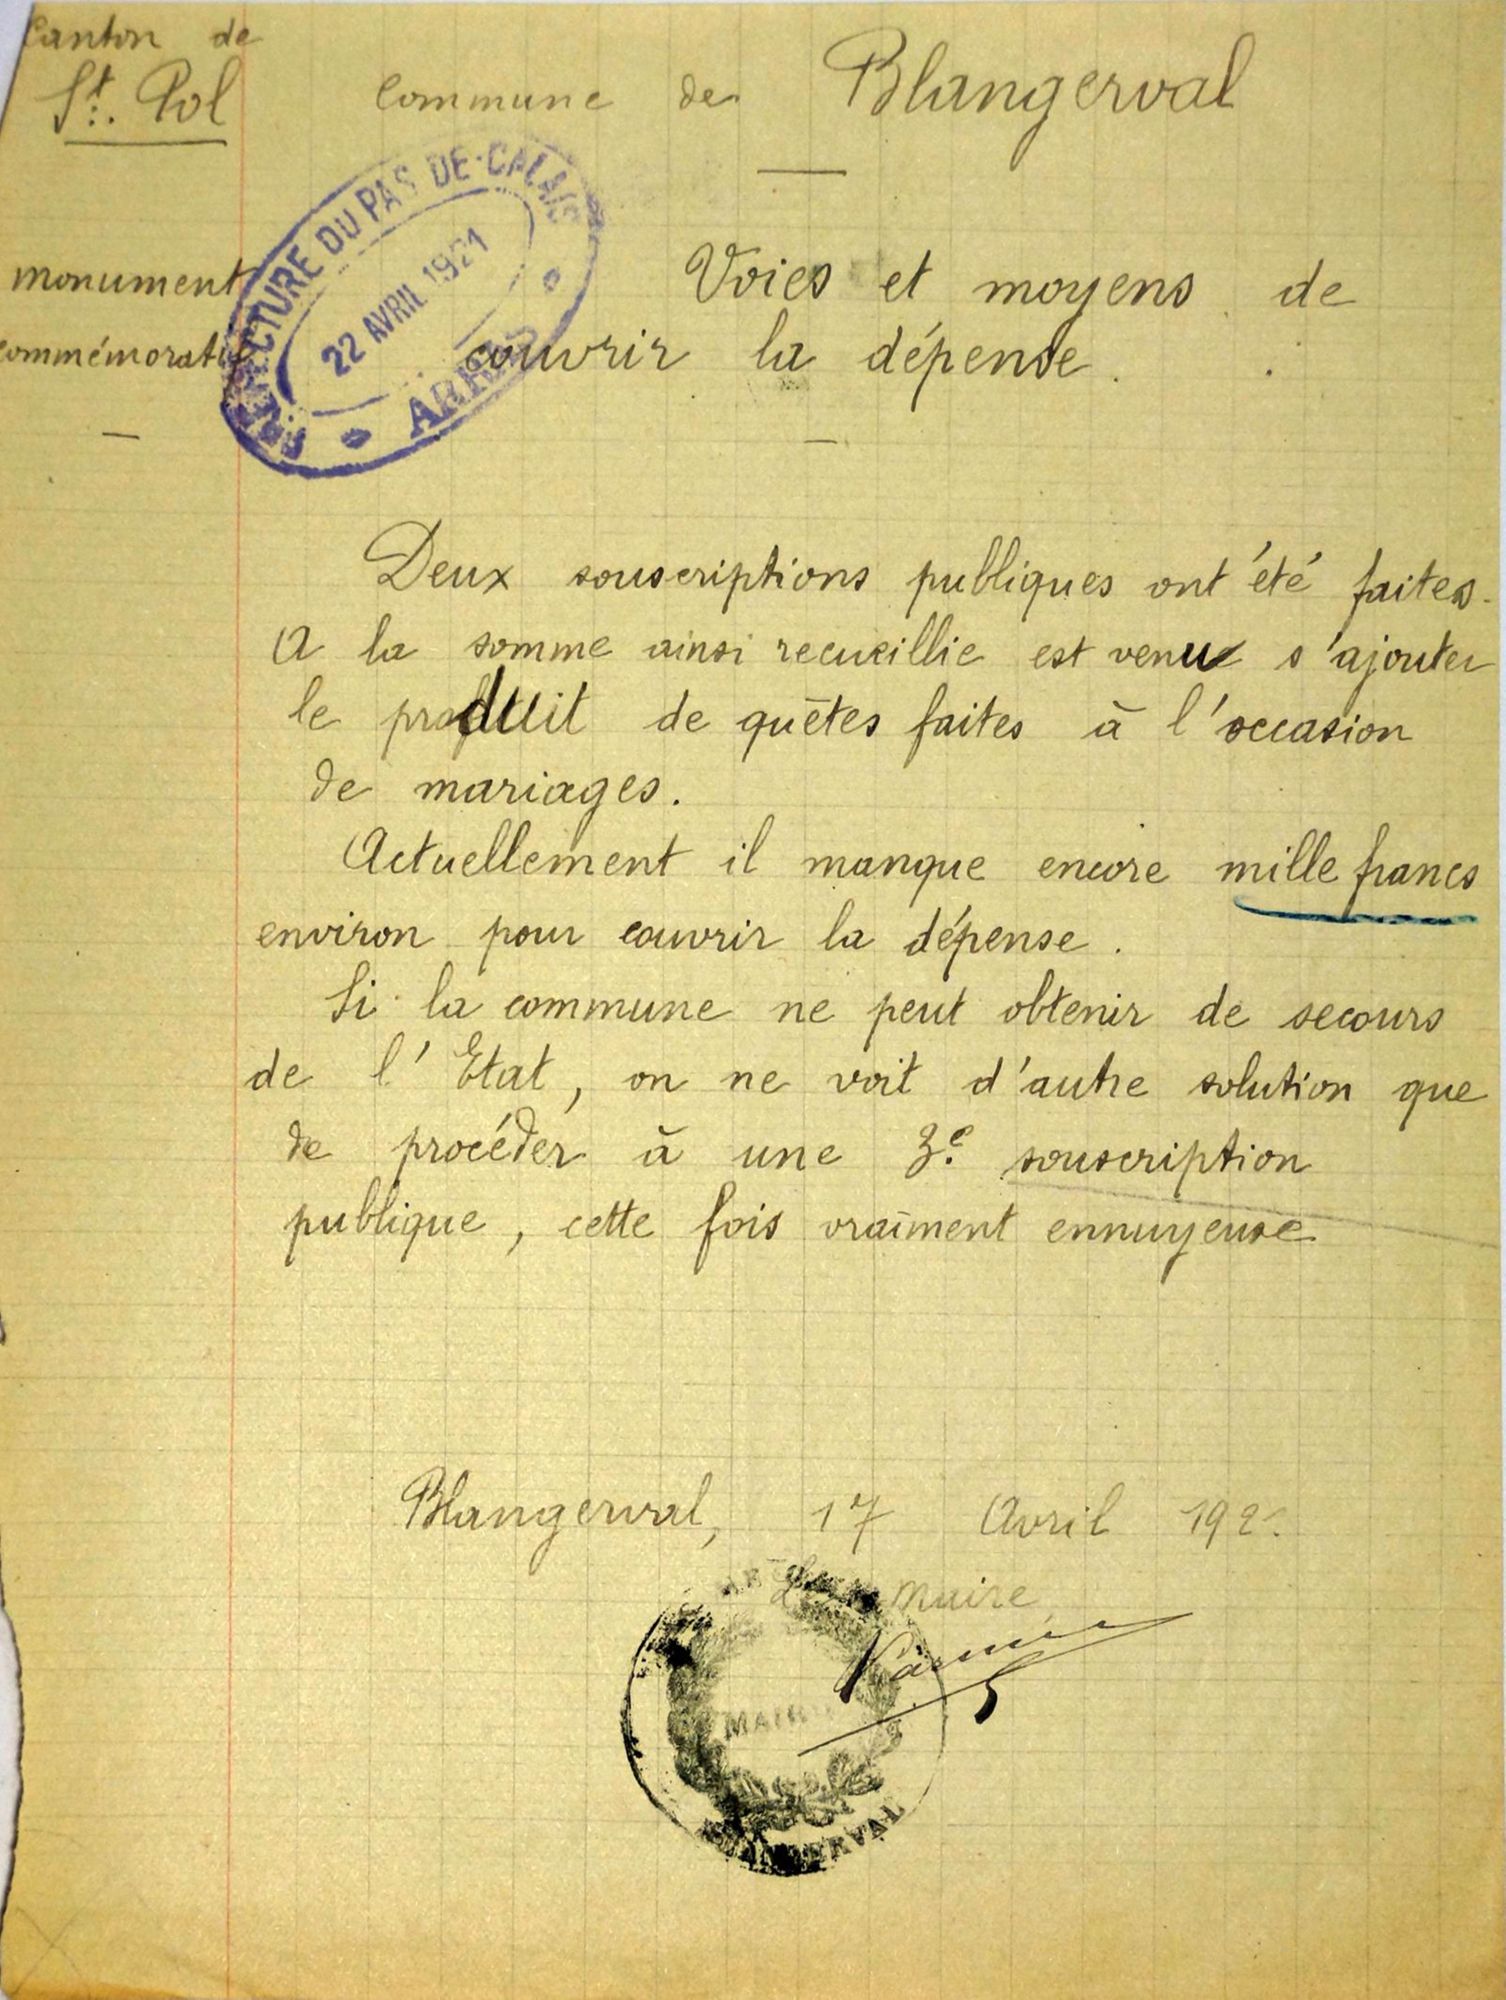 Canton de
St. Pol
Commune de Blangerval
PRÉFECTURE DU PAS-DE-CALAIS
22 AVRIL 1921
ARRAS
monument
commémoratif
Voies et moyens de
couvrir la dépense.
Deux souscriptions publiques ont été faites.
A la somme ainsi recueillie est venu s'ajouter
le produit de quêtes faites à l'occasion
de mariages.
Actuellement il manque encore mille francs
environ pour couvrir la dépense.
Si la commune ne peut obtenir de secours
de l'Etat, on ne voit d'autre solution que
de procéder à une 3e souscription
publique, cette fois vraiment ennuyeuse
Blangerval, 17 Avril 192
Le Maire,
MAIRIE
BLANGERVAL